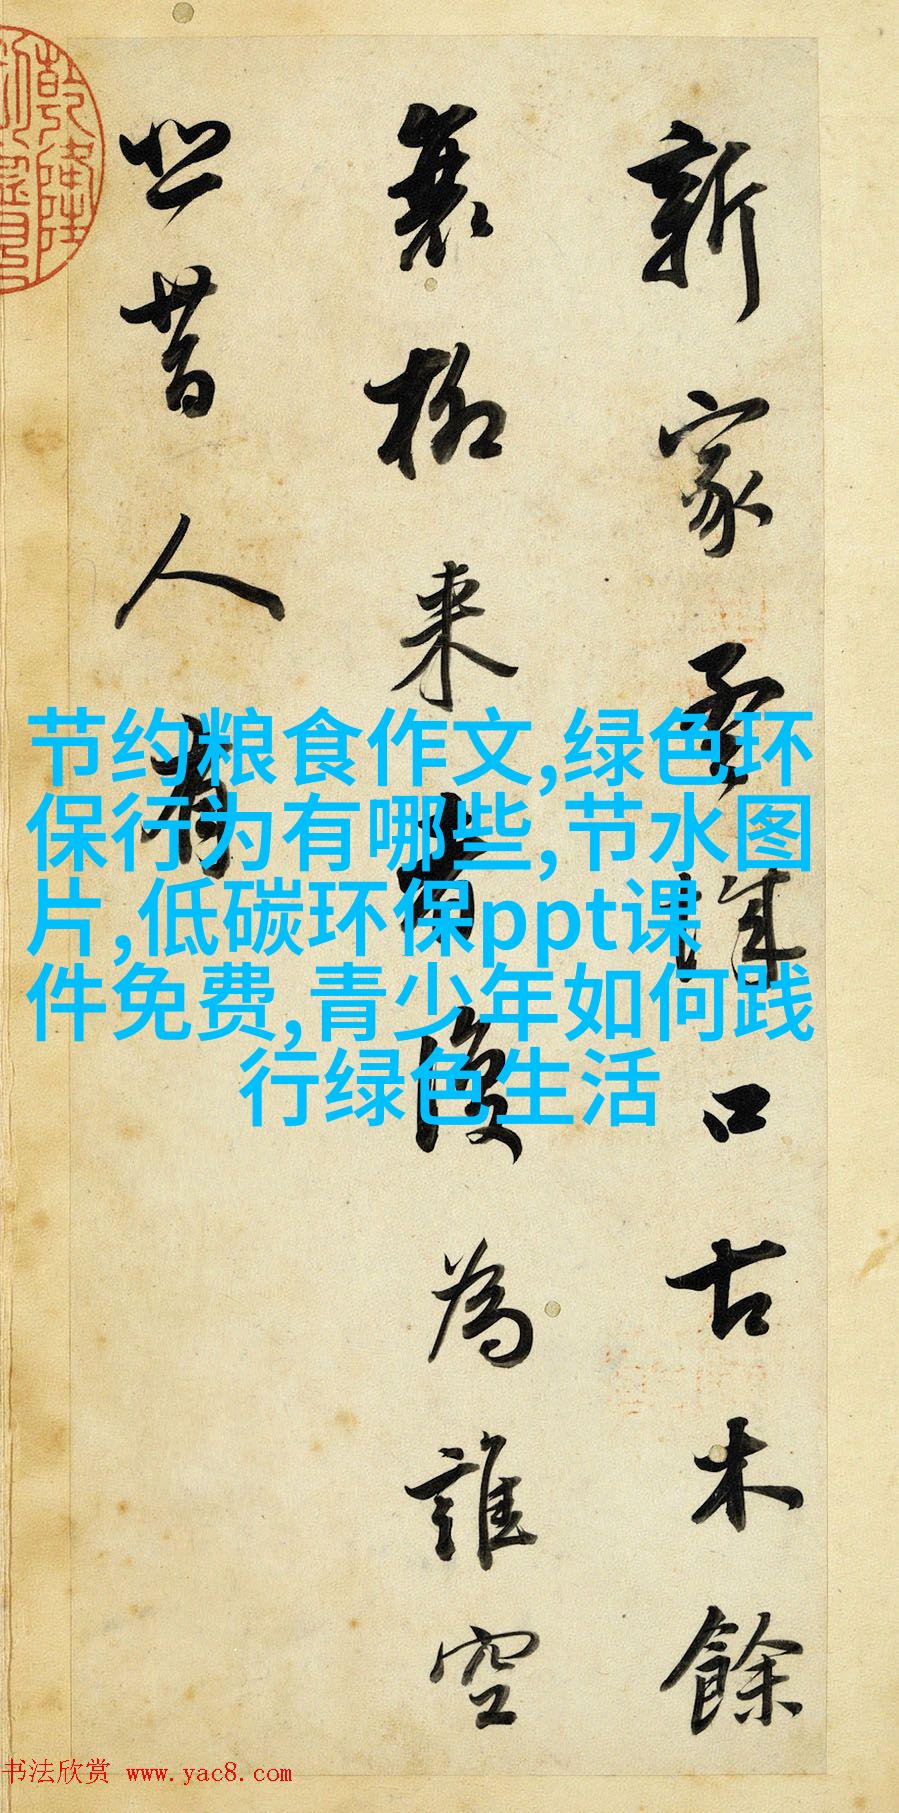 新家孟城口古木餘
衰柳来者復為誰空
悲昔人有
乾隆
节约粮食作文,绿色环
保行为有哪些,节水图
片,低碳环保ppt课
件免费,青少年如何践
行绿色生活
书法欣赏 www.yac8.com